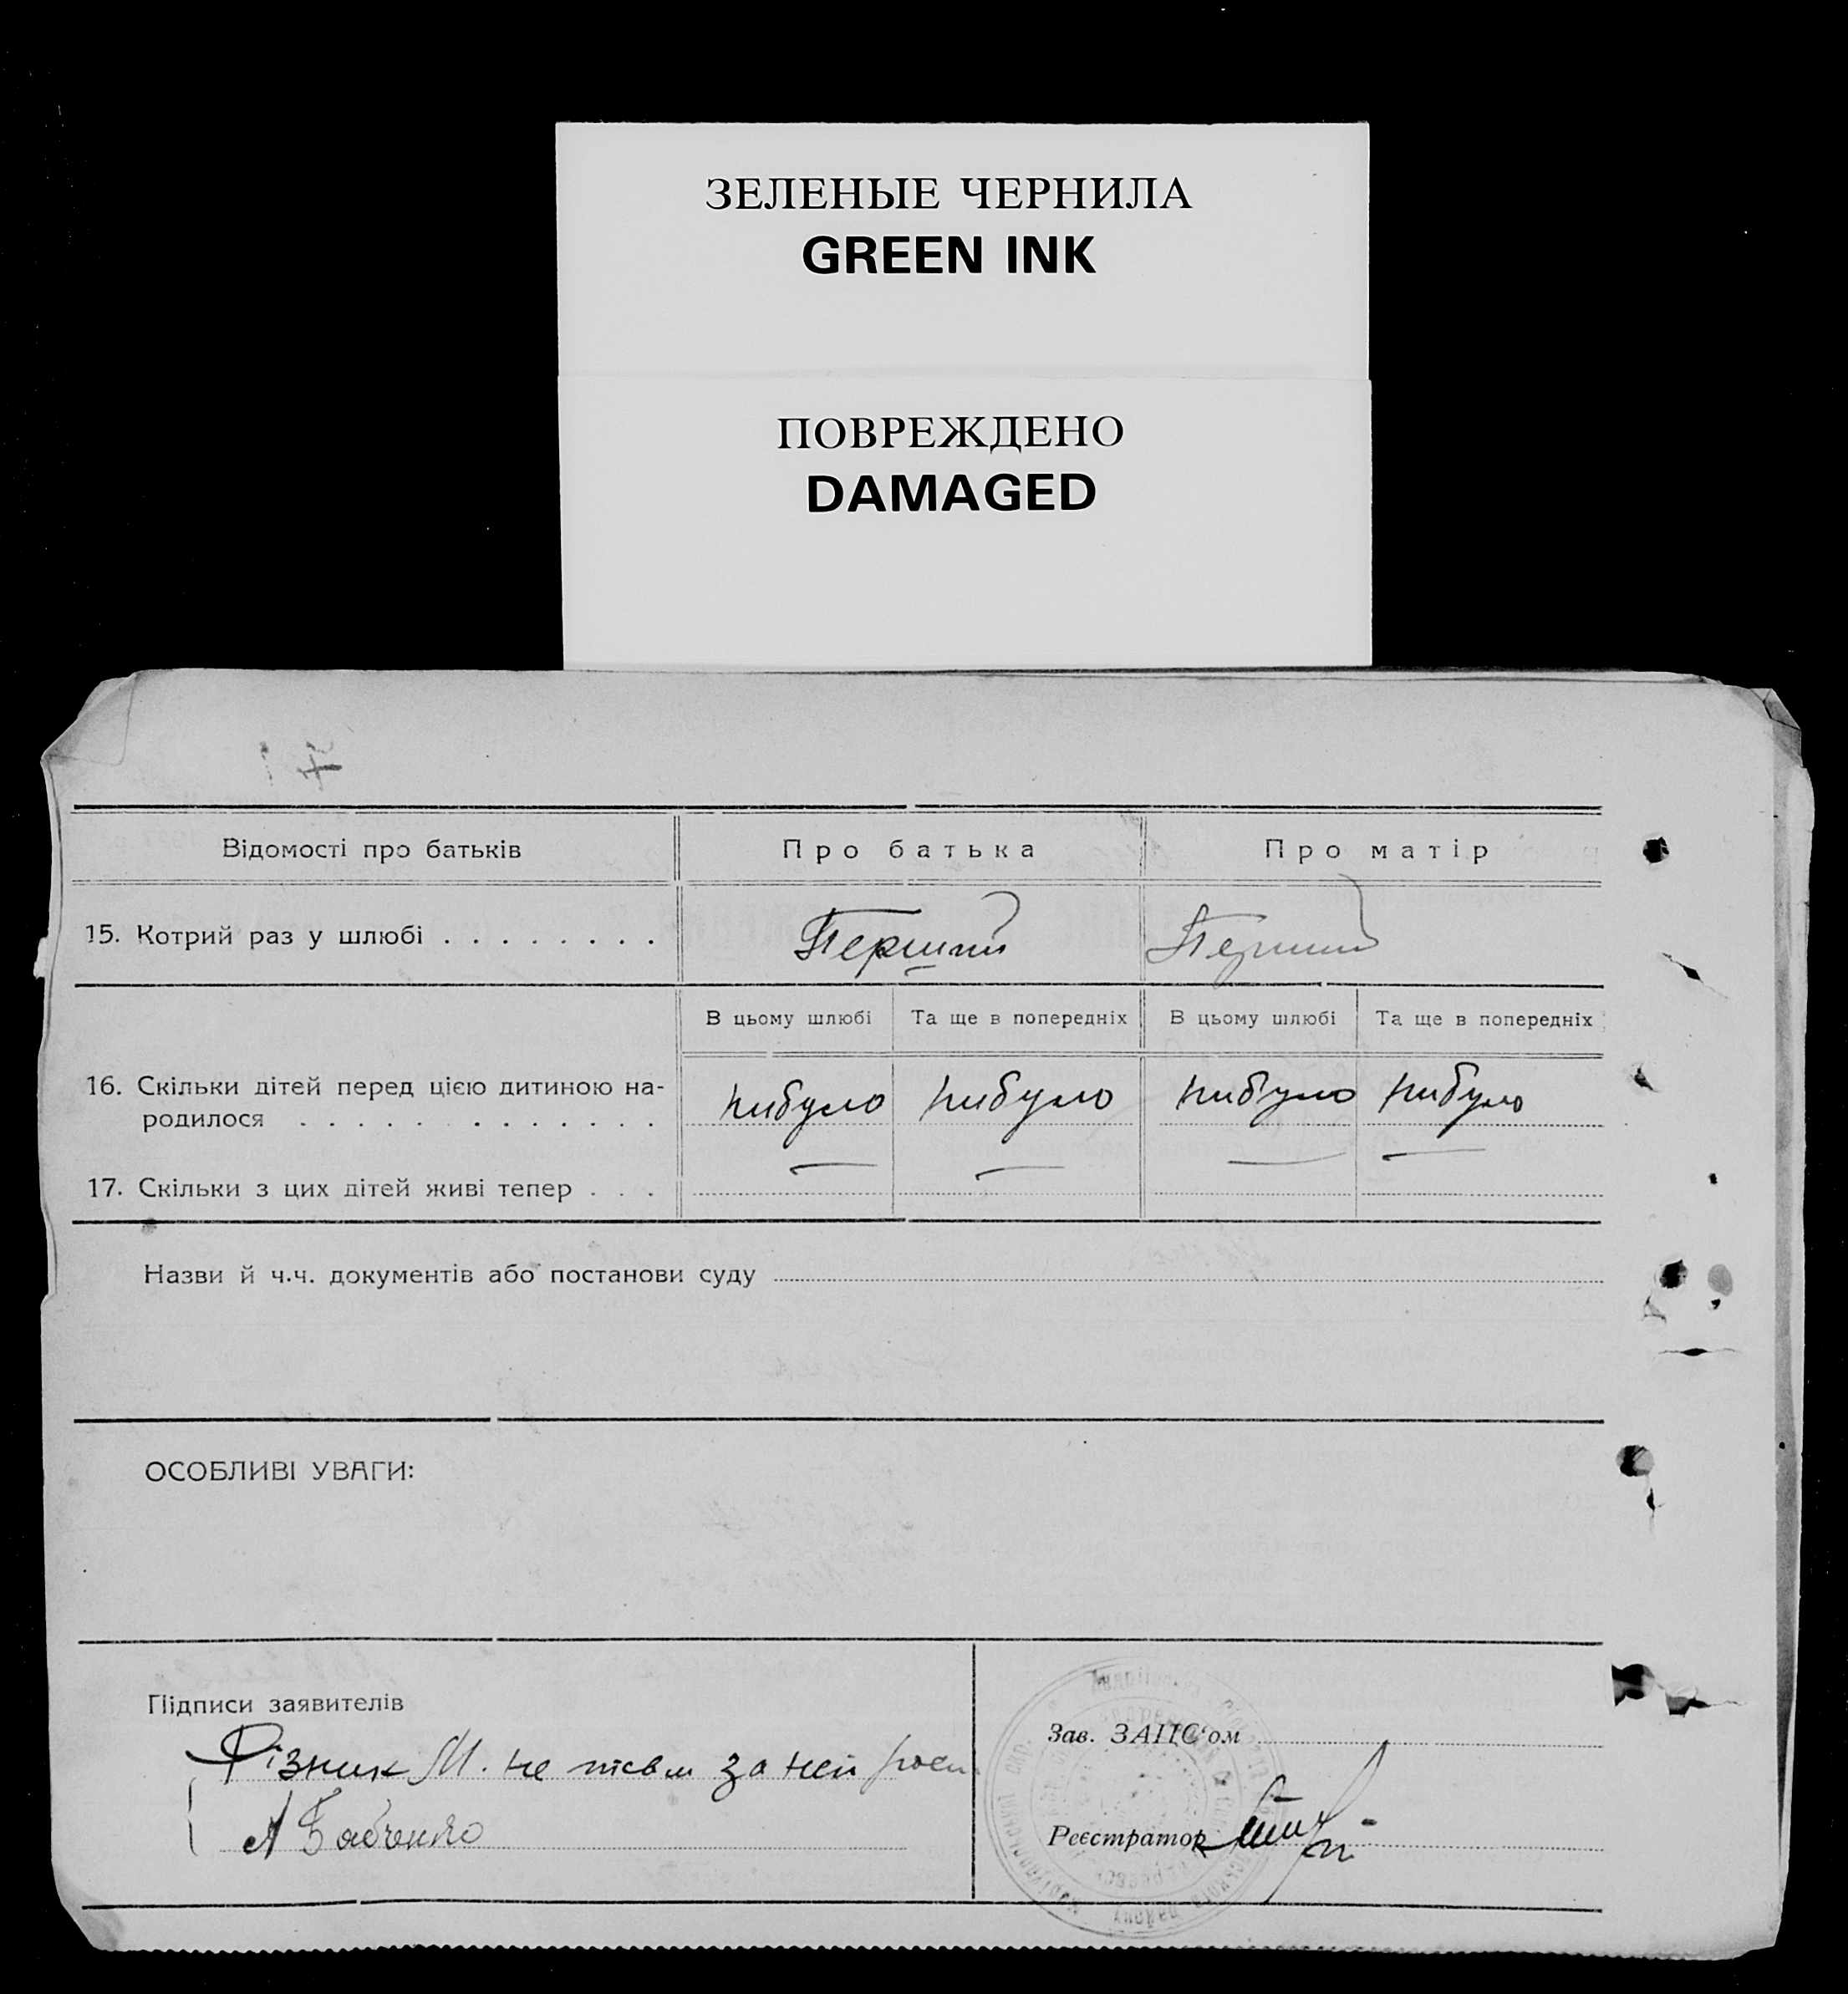 ЗЕЛЕНЫЕ ЧЕРНИЛА
GREEN INK
ПОВРЕЖДЕНО
DAMAGED
Відомості про батьків Про батька Про матір
15. Котрий раз у шлюбі . . . . . . . . Перший Перший
В цьому шлюбі Та ще в попередніх В цьому шлюбі Та ще в попередніх
16. Скільки дітей перед цією дитиною на-
родилося . . . . . . . . . . . . . нибуло нибуло нибуло нибуло
17. Скільки з цих дітей живі тепер . . . — — — —
Назви й ч.ч. документів або постанови суду
ОСОБЛИВІ УВАГИ:
Підписи заявителів
Різник М. не за неи
А Бабченко
Зав. ЗАЦС'ом
Реєстратор